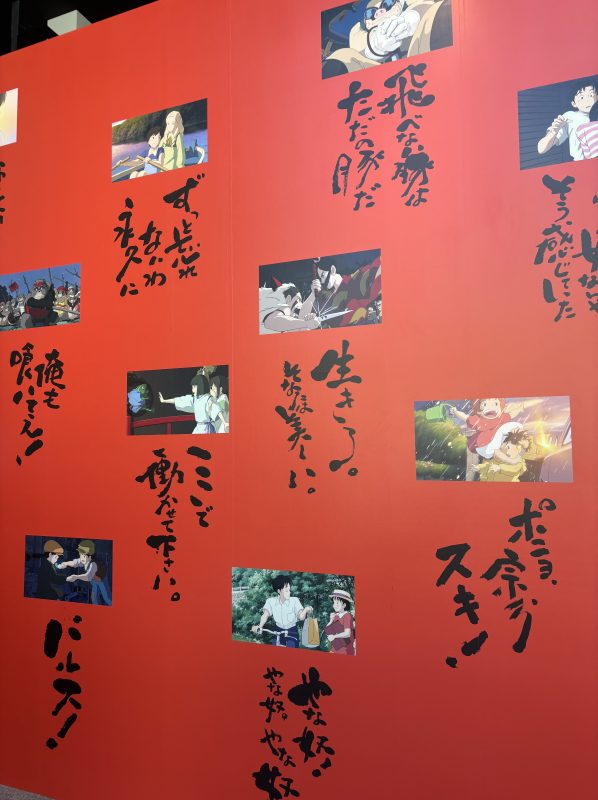 飛べない豚は
ただの豚だ
ずっと忘れ
ないわ
永久に
そう、感じていた
俺も
喰いてえ!
生きろ。
そなたは美しい。
ここで
働かせて下さい。
ポニョ、
宗介
スキ!
バルス!
やな奴!
やな奴。やな奴